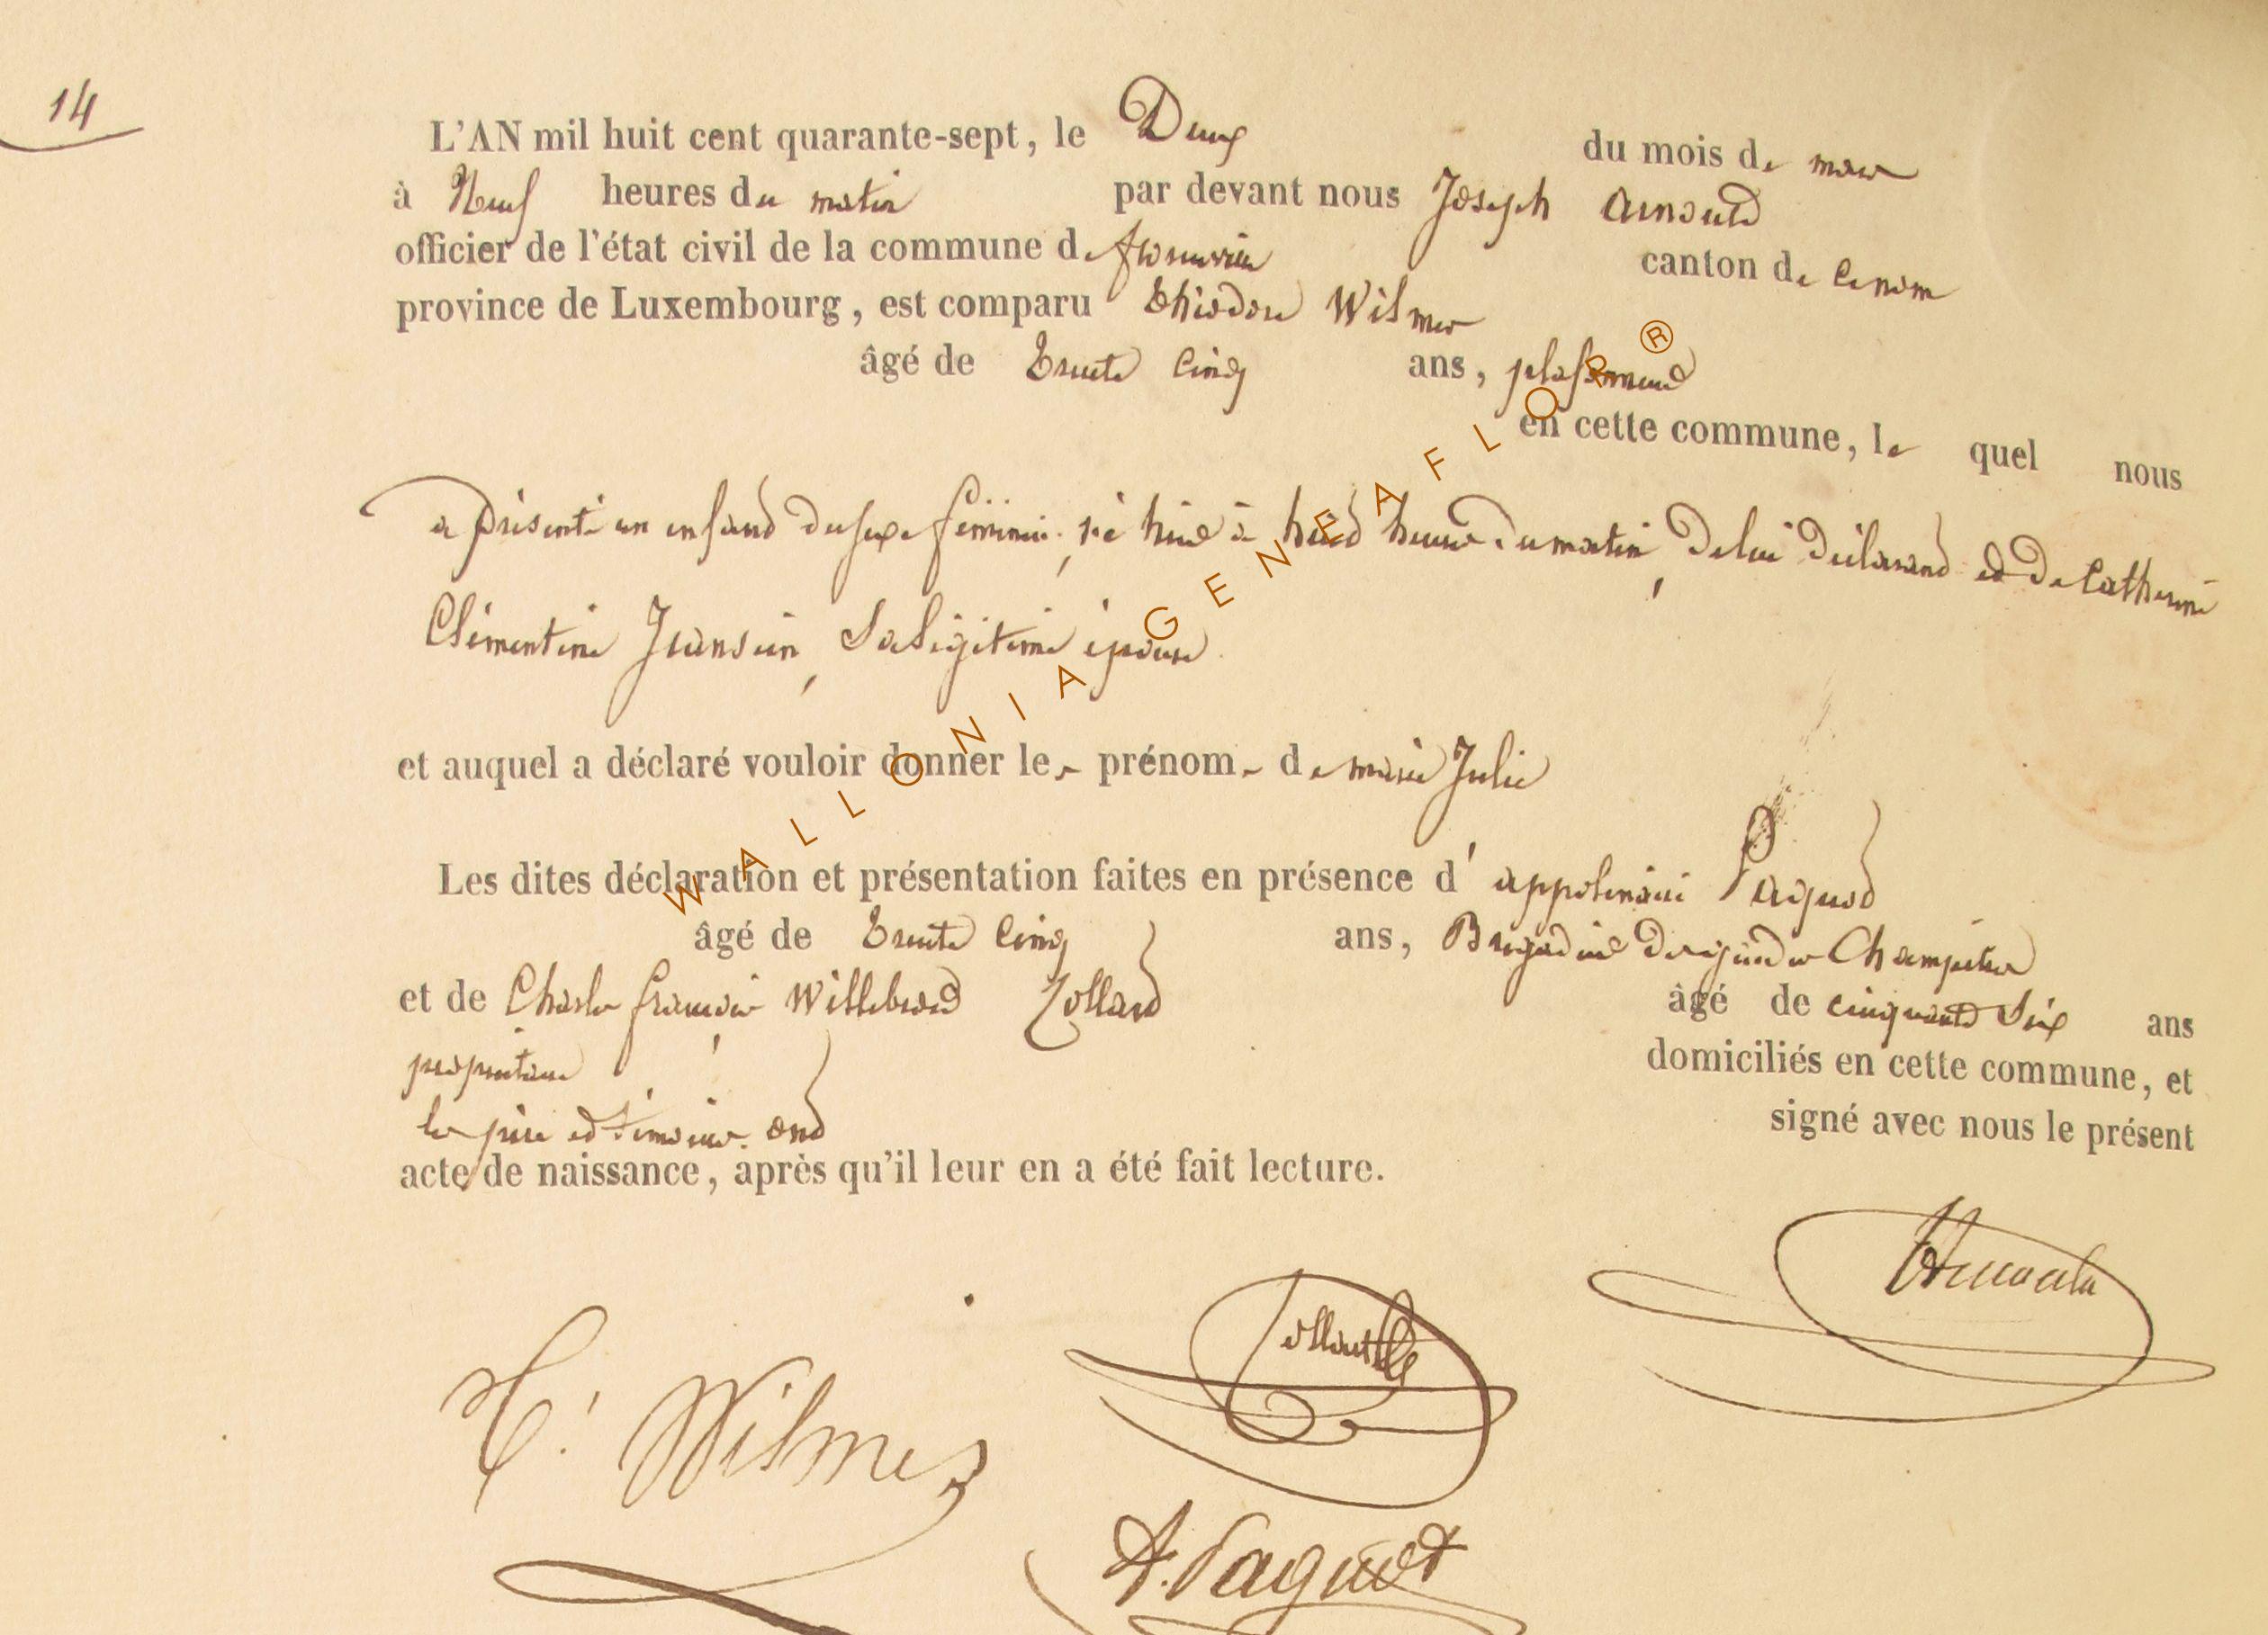 14
L'AN mil huit cent quarante-sept, le Deux du mois de mars
à Neuf heures du matin par devant nous Joseph Arnould
officier de l'état civil de la commune de florenville canton de
province de Luxembourg, est comparu théodore Wilmes
âgé de trente cinq ans, plafonneur
en cette commune, le quel nous
a présenté un enfand du sexe féminin, né hier à huid heures du matin, de lui déclarand et de Catherine
Clémentine Jeansein, Sa légitime épouse
et auquel a déclaré vouloir donner les prénoms de marie Julie
Les dites déclaration et présentation faites en présence d'appolinaire Paquod
âgé de trente cinq ans, Brigadier des gardes Champêtres
et de Charles françois Willebrord Collard âgé de cinquante Six ans
propriétaire domiciliés en cette commune, et
les père et témoins ond signé avec nous le présent
acte de naissance, après qu'il leur en a été fait lecture.
Arnould
Collard
T! Wilmes
A. Paquot
WALLONIA GENEAFLOR ®